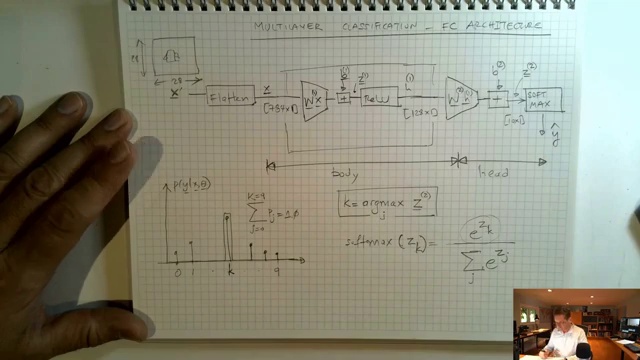 MULTILAYER CLASSIFICATION - FC ARCHITECTURE
28
28
X
Flatten
x
[784x1]
W⁽¹⁾x
b⁽¹⁾
+
z⁽¹⁾
ReLU
h⁽¹⁾
[128x1]
W⁽²⁾h⁽¹⁾
b⁽²⁾
+
z⁽²⁾
[10x1]
SOFT MAX
ŷ
body
head
p(y|x,θ)
K=9
Σ Pj = 1.0
j=0
0 1 . k 9
k = argmax z⁽²⁾
j
softmax (z_k) = e^{z_k}
Σ e^{z_j}
j